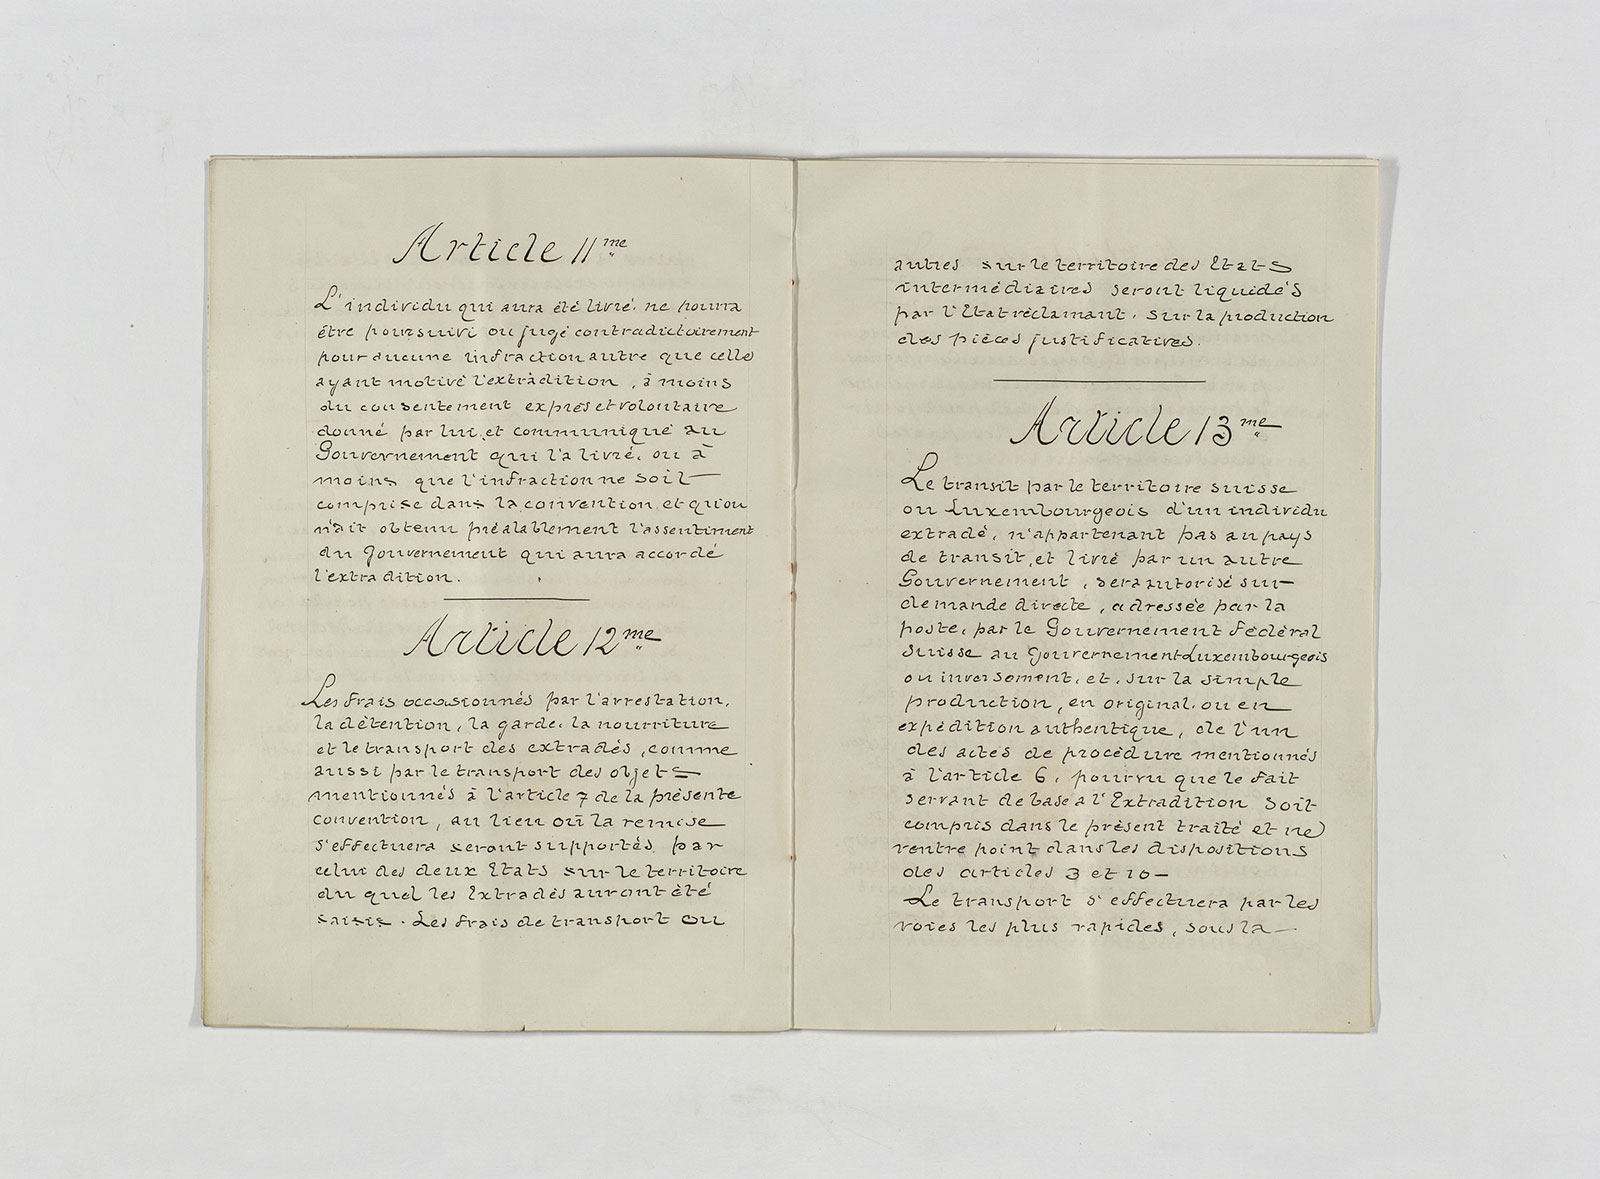 Article 11me
L'individu qui aura été livré, ne pourra
être poursuivi ou jugé contradictoirement
pour aucune infraction autre que celle
ayant motivé l'extradition, à moins
du consentement exprès et volontaire
donné par lui, et communiqué au
Gouvernement qui l'a livré, ou à
moins que l'infraction ne soit
comprise dans la convention, et qu'on
n'ait obtenu préalablement l'assentiment
du Gouvernement qui aura accordé
l'extradition.
Article 12me
Les frais occasionnés par l'arrestation,
la détention, la garde, la nourriture
et le transport des extradés, comme
aussi par le transport des objets
mentionnés à l'article 7 de la présente
convention, au lieu où la remise
s'effectuera seront supportés par
celui des deux Etats sur le territoire
du quel les Extradés auront été
saisis. Les frais de transport ou
autres sur le territoire des Etats
intermédiaires seront liquidés
par l'Etat réclamant, sur la production
des pièces justificatives.
Article 13me
Le transit par le territoire suisse
ou Luxembourgeois d'un individu
extradé, n'appartenant pas au pays
de transit, et livré par un autre
Gouvernement, sera autorisé sur
demande directe, adressée par la
poste, par le Gouvernement Fédéral
Suisse au Gouvernement Luxembourgeois
ou inversement, et, sur la simple
production, en original, ou en
expédition authentique, de l'un
des actes de procédure mentionnés
à l'article 6, pourvu que le fait
servant de base a l'Extradition soit
compris dans le présent traité et ne
rentre point dans les dispositions
des articles 3 et 10 —
Le transport s'effectuera par les
voies les plus rapides, sous la —